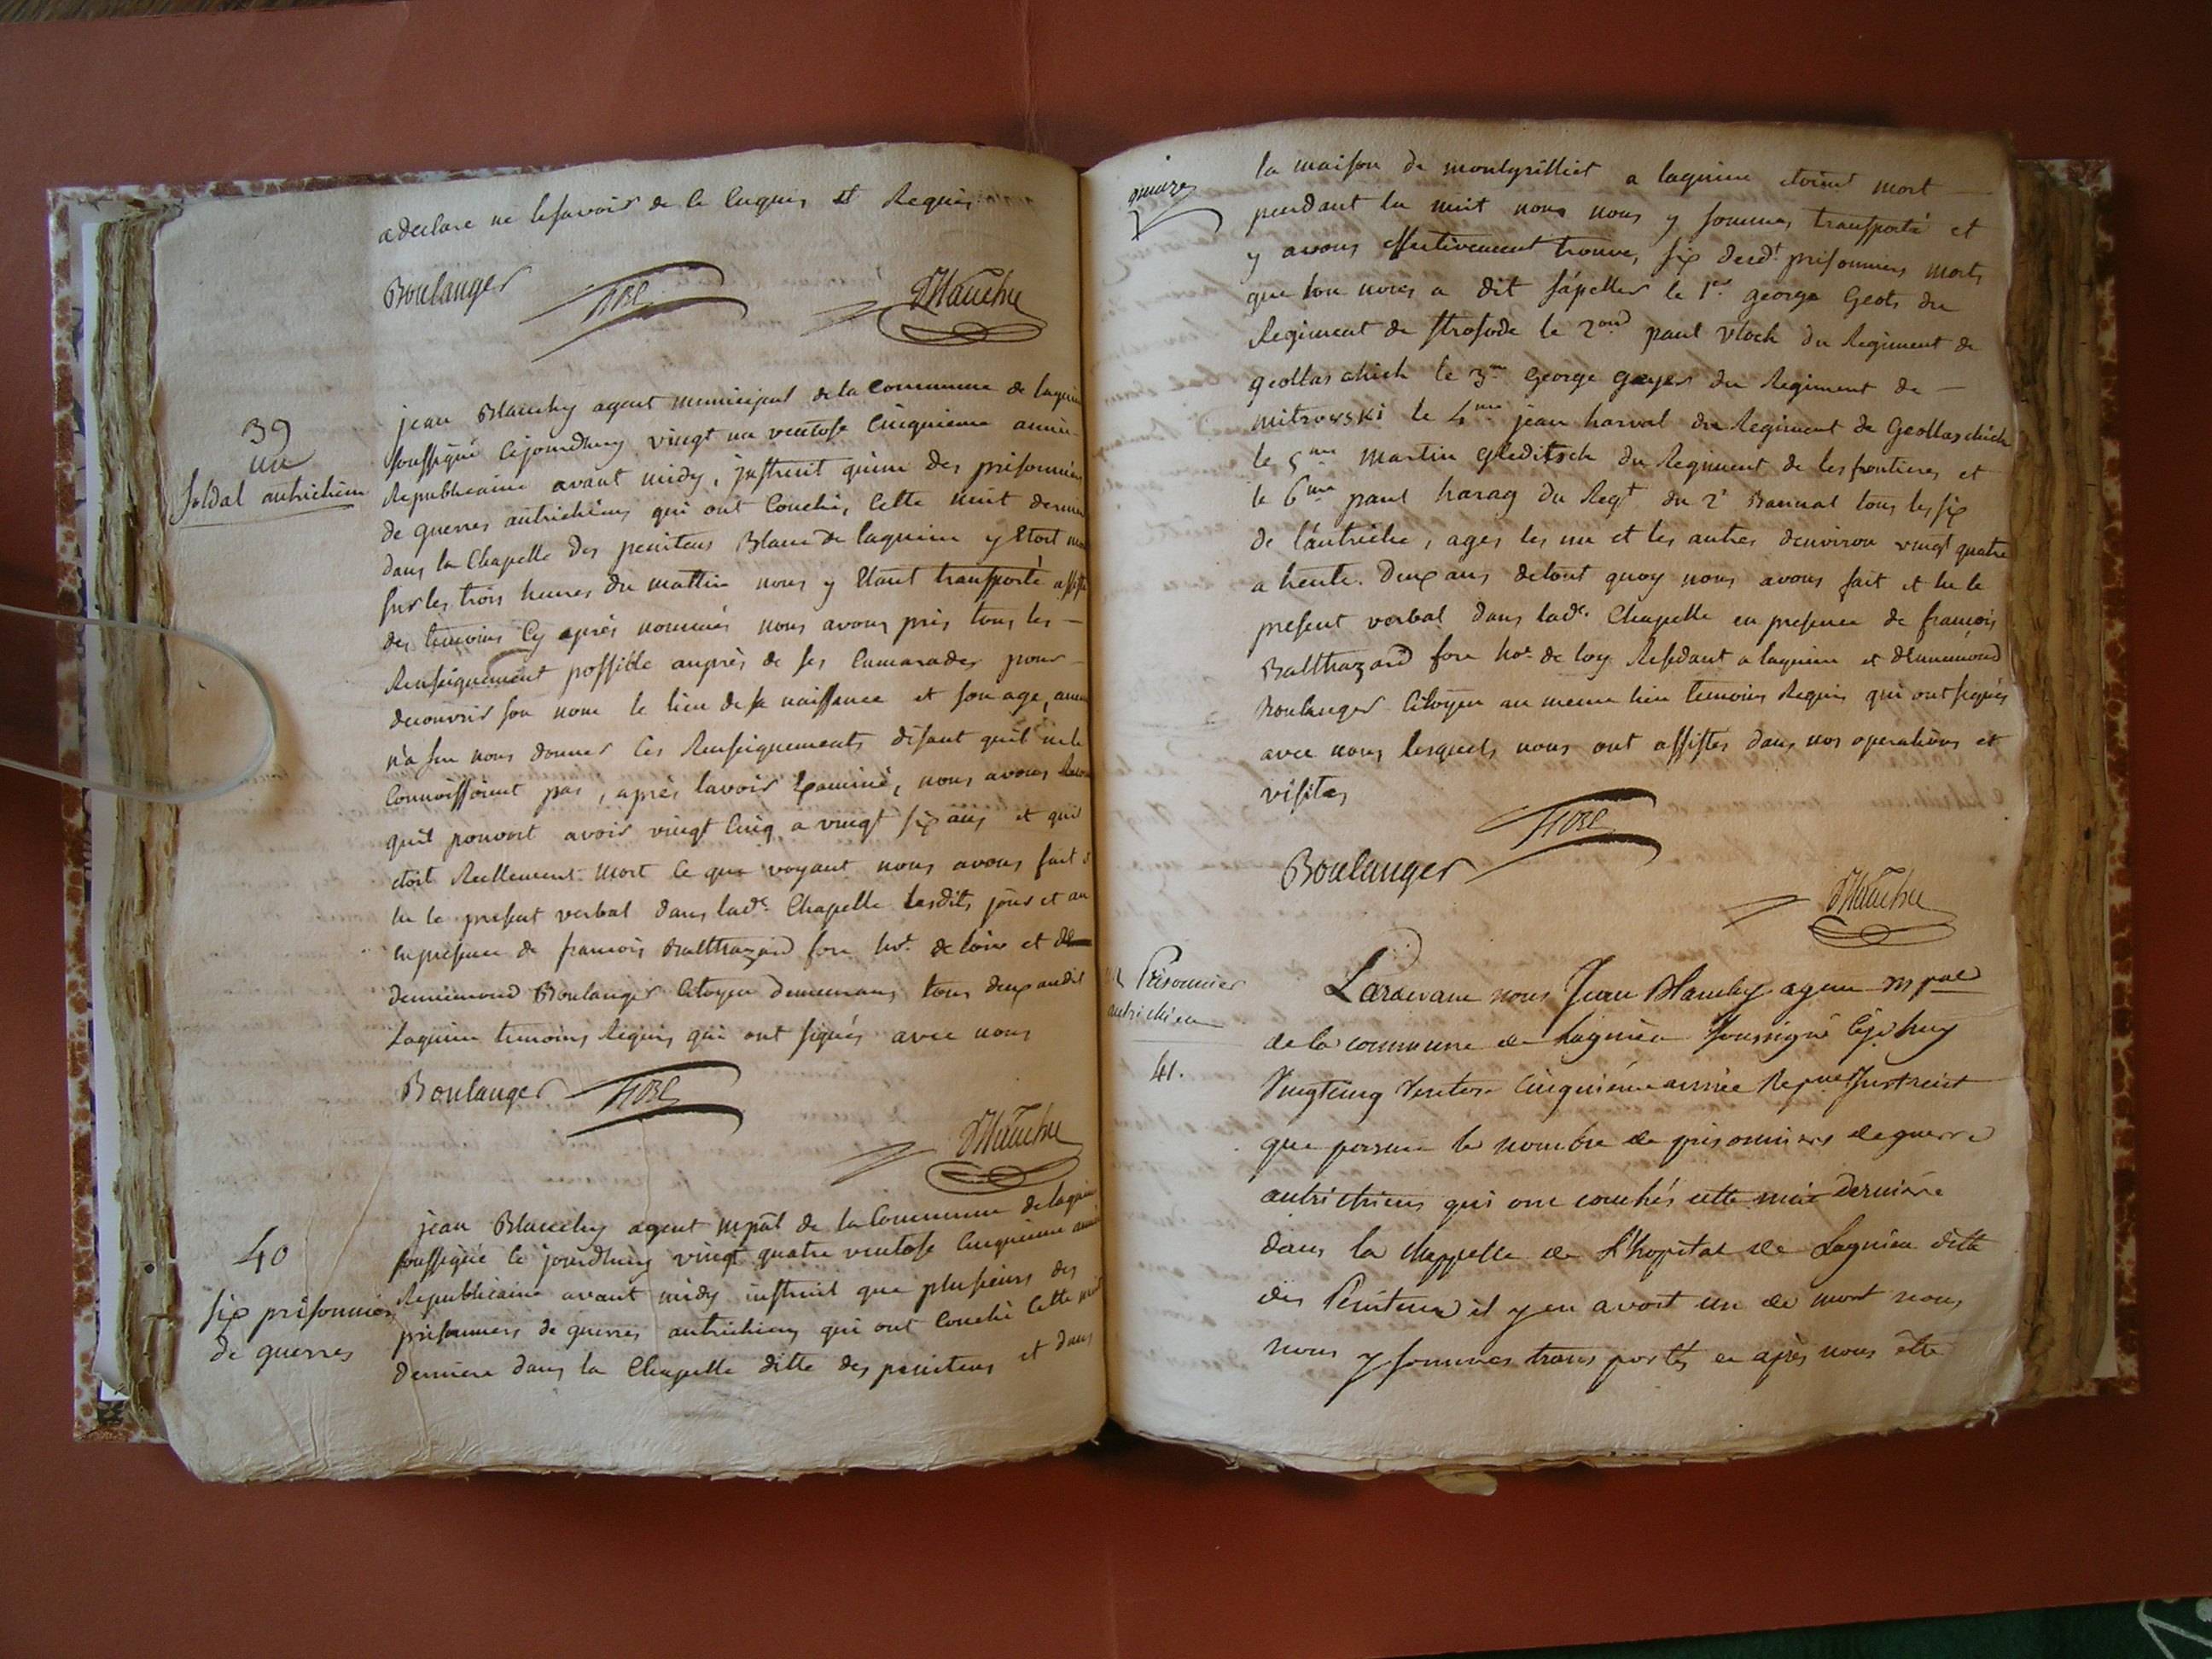 a declare ne le savoir de ce enquis et Requis
Boulanger
39
un
soldat autrichien
jean Blanchy agent municipal de la Commune de lagnieu
soussigné Cejourdhuy vingt un ventose Cinquieme année
Republicaine avant midy, justruit qu'un des prisonniers
de guerres autrichiens qui ont Couché, Cette nuit derniere
dans la Chapelle des penitens Blanc de lagnieu y Etoit mort
sur les trois heures du mattin nous y Etant transporté assisté
des temoins Cy après nommés nous avons pris tous les
Renseignement possible auprès de ses Camarades pour
decouvrir son nom le lieu de sa naissance et son age, aucun
n'a su nous donner Ces Renseignements disant quil ne le
Connoissoient pas, après lavoir Examiné, nous avons
quil pouvoit avoir vingt Cinq a vingt six ans et quil
etoit Reellement mort Ce que voyant nous avons fait
lu le present verbal dans lade. Chapelle lesdits jour et an
en presence de francois Balthazard fore et
dennemond Boulanger Citoyen demeurans tous deux audit
Lagnieu temoins Requis qui ont signés avec nous
Boulanger
40
six prisonniers
de guerres
jean Blanchy agent mpal de la Commune de lagnieu
soussigné Ce jourdhuy vingt quatre ventose Cinquieme année
Republicaine avant midy instruit que plusieurs des
prisonniers de guerres autrichiens qui ont Couché Cette nuit
derniere dans la Chapelle ditte des penitens et dans
quinze
la maison de montgrilliet a lagnieu etoient mort
pendant la nuit nous nous y sommes transporté et
y avons effectivement trouve, six desdt. prisonniers morts
que lon nous a dit s'apeller le 1er george Geots du
Regiment de strasode le 2ond paul vlock du Regiment de
geollaschich le 3me George geyer du Regiment de
mitrowski le 4me jean harval du Regiment de Geollaschich
le 5me Martin gleditsch du Regiment de les frontieres et
le 6me paul harag du Regt. du 2e Bannat tous les six
de l'autriche, ages les un et les autres denviron vingt quatre
a trente. Deux ans de tout quoy nous avons fait et lu le
present verbal dans lade. Chapelle en presence de françois
Balthazard fore hoe. de loy Residant a lagnieu et dennemond
Boulanger Citoyen au meme lieu temoins Requis qui ont signés
avec nous lesquels nous ont assistes dans nos operations et
visites
Boulanger
Prisonnier
autrichien
41.
Pardevant nous Jean Blanchy agent mpal
de la commune de Lagnieu soussigné Cejdhuy
Vingt cinq Ventose Cinquiéme année Repne Justruit
que parmi le nombre de prisonniers de guerre
autrichiens qui ont couchés cette nuit derniére
dans la chappelle de L'hopital de Lagnieu ditte
des Penitens il y en avoit un de mort nous
nous y sommes transportés et après nous être